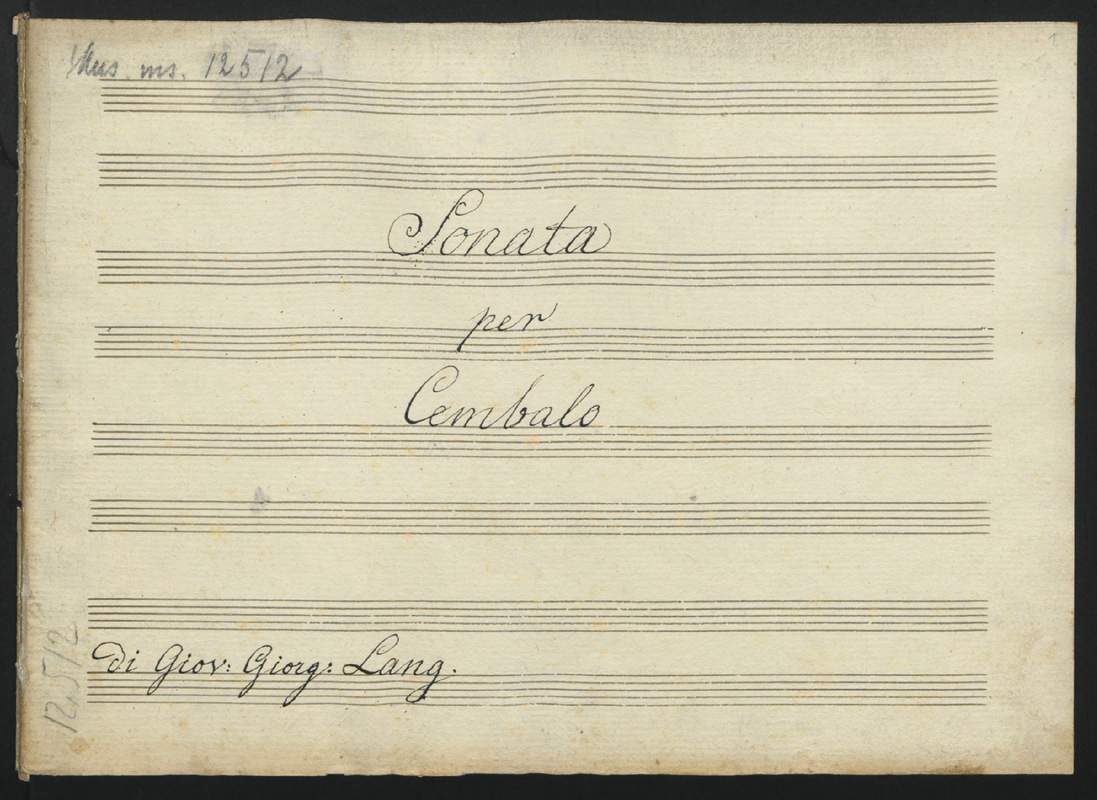 Mus. ms. 12512
1
Sonata
per
Cembalo
di Giov: Giorg: Lang.
12512